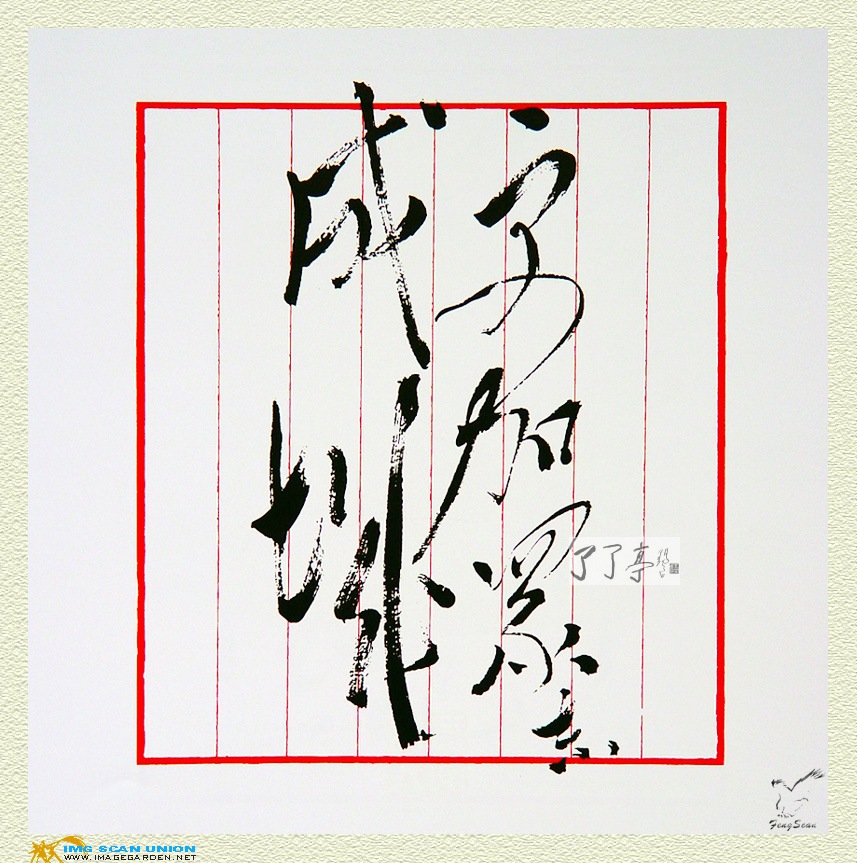 眾志
成城
了了亭
FengScan
IMG SCAN UNION
WWW.IMAGEGARDEN.NET